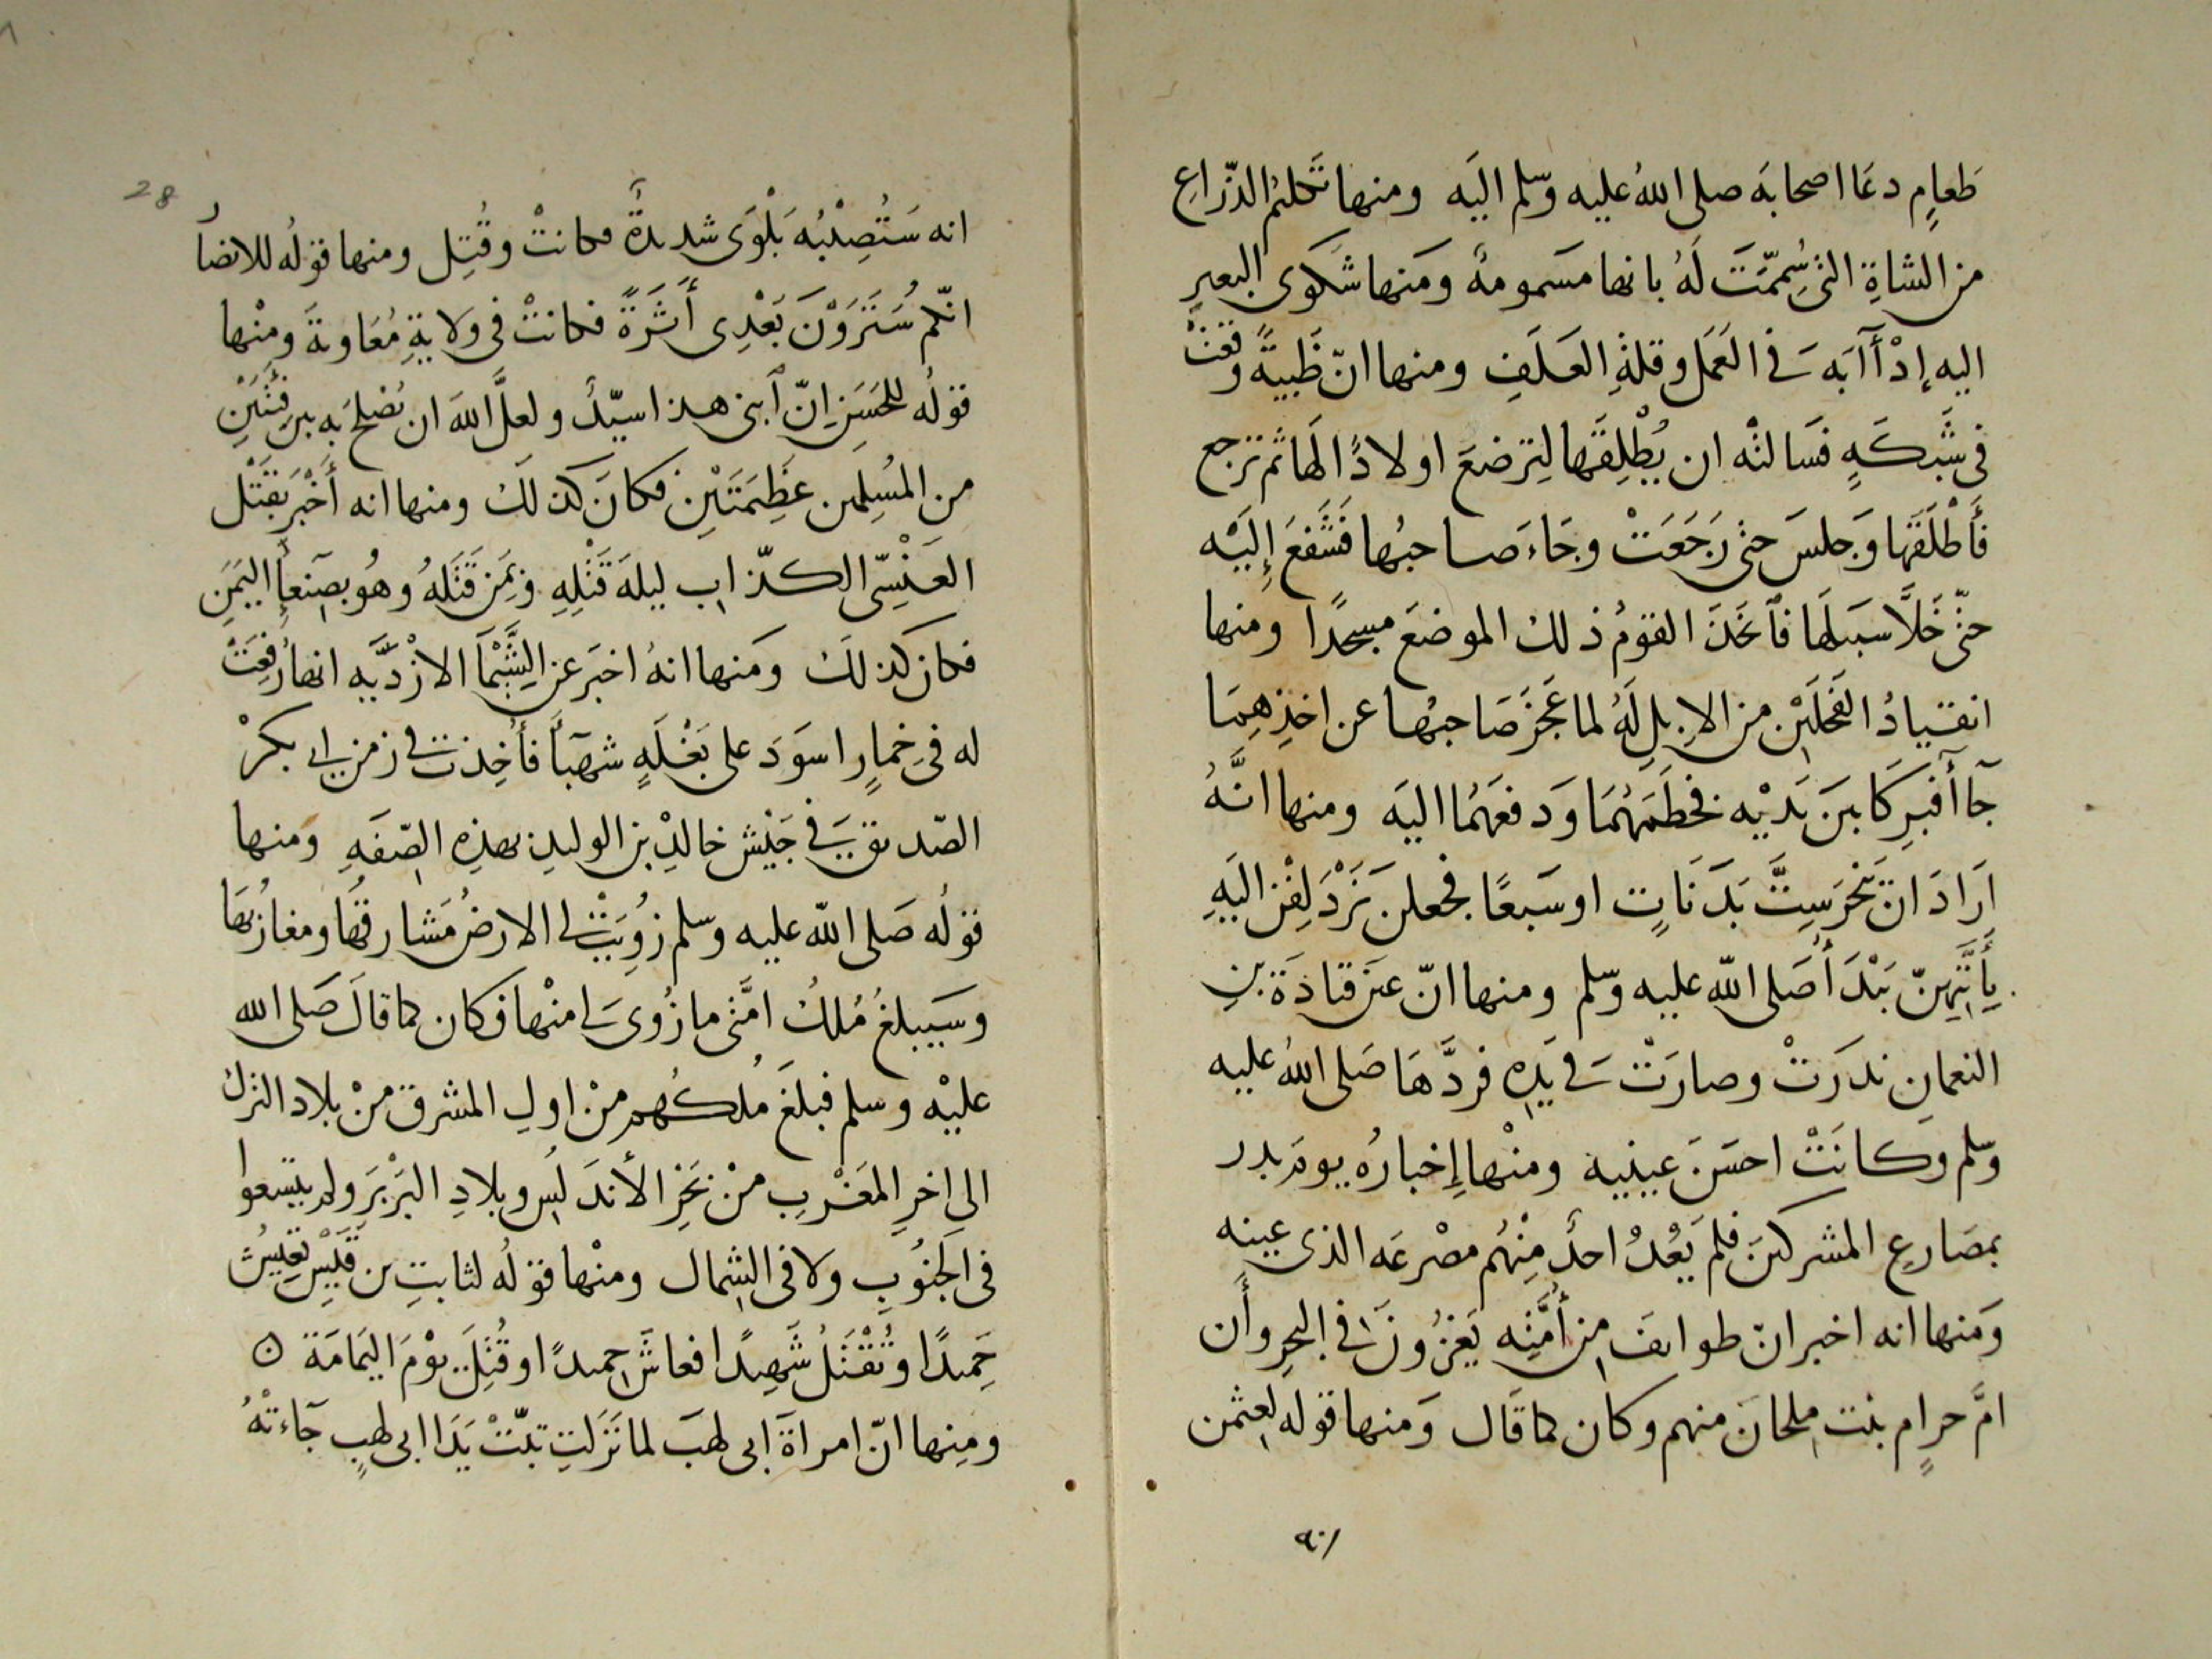 طَعامٍ دعَا اصحابهَ صلى اللهُ عليه وسّلم اليَه ومنها تَكلمُ الذّراعِ
من الشاةِ التى سُمِّمَتَ لَهُ بانها مسَمومةٌ ومَنها شَكوَى البعيرِ
اليه إدْأآبَه فى العَمَل وقلةِ العَلَفِ ومنها انّ ظَبيةً وقعَتْ
فى شَبكَةٍ فسَالتْه ان يُطْلِقَها لِترضعَ اولادًا لهَا ثم ترجع
فأَطْلَقَها وَجلسَ حتى رَجَعَتْ وجَاءَ صاحبُها فَشَفعَ إِلَيْه
حتّى خَلَّا سبَيلَها فٱتخَذَ القومُ ذلك الموضعَ مسجدًا ومنها
انقيادُ الفَحلَيْن من الابلِ لَهُ لما عَجَزَ صَاحبُها عن اخذِهِمَا
جآأ فَبرَكَا بينَ يَديْه فخطَمَهُمَا وَدفعَهُمَا اليَه ومنها انَّهُ
اَرَادَ ان يَنْحَرَ سِتَّ بَدَنَاتٍ اوسَبعًا فجعلن يَزْدَلِفْن اليَهِ
بِأَيَّتِهِنّ يَبْدَأُ صَلى اللّه عليه وسّلم ومنها انّ عيَن قتادَةَ بنِ
النعمانِ ندَرَتْ وصارَتْ فى يَدِه فردَّهَا صَلى اللهُ عليه
وسّلم وَكانَتْ احسَنَ عينيه ومنْها إِخبارُه يومَ بدر
بمصَارعِ المشركينَ فلمَ يَعْدُ احدٌ مِنْهُم مصْرعَه الذى عينه
وَمنها انه اخبر انّ طوايفَ من أُمَّتِه يَغزُونَ فى البحرِ وأَن
امَّ حرامٍ بنت ملحانَ منهم وكان كما قَال وَمنها قوله لعثمن
٩٠/
28
انه سَتُصِيْبُه بَلْوَى شديدةٌ فكانتْ وقُتِل ومنها قولُه للانصار
انّكم سَتَرَوْنَ بَعْدِى أَثَرَةً فكانتْ فى ولايةِ مُعَاويةَ ومنْها
قولُه للحَسَنِ اِنّ ٱبنى هذا سيّدٌ ولعلَّ اللهَ ان يُصْلحَ به بين فئتَينِ
من المُسِلمين عَظِيمَتَيْنِ فكانَ كذلَكَ ومنها انه أَخْبَرَ بقَتْل
العَنْسِّى الكذّاب ليلةَ قَتْلِهِ وبمَن قَتَلَهُ وهُو بصَنعأِ اليمَنِ
فكان كذلَكَ ومَنها انهُ اخبَر عن الشَّيْمَآ الازْدِيَّه انها رُفِعَتْ
له فى خمارٍ اسوَدَ على بَغْلَةٍ شهبَآ فأُخِذت فى زمن ابى بكرْ
الصّديق فى جَيْش خالدِ بن الوليدِ بهذِه الصّفَةِ ومنها
قولُه صَلى اللّه عليه وسّلم زُوِيَتْ لى الارضُ مَشارقُها ومغاربُهَا
وسَيبلغُ مُلكُ امَّتى ما زُوِىَ لى منْها فكان كما قالَ صَلى الله
عليْه وسلم فبلغَ مُلكُهم منْ اولِ المشرق منْ بلاد الترك
الى اخرِ المَغْربِ منْ بَحْرِ الأَندَلُسِ وبلادِ البَرْبَرَ ولم يتسعوا
فى الجَنُوبِ ولا فى الشِمال ومنْها قولُه لثابتِ بن قَيْسٍ تعِيشُ
حَميدًا وتُقْتَلُ شَهِيدًا فعاشَ حميدًا وقُتِلَ يوْمَ اليَمَامَة ن
ومِنها انّ امراةَ ابى لهبَ لما نَزَلَتِ تبّتْ يَدَا ابى لهبٍ جَآءتْهُ